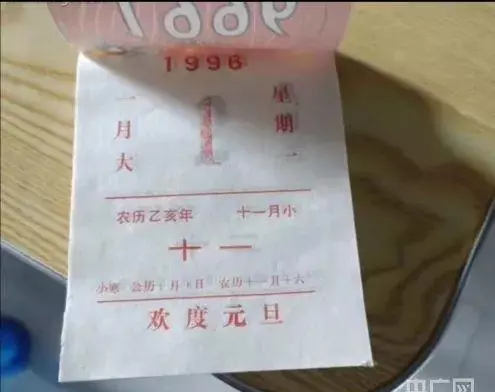 1996
一月大 1 星期一
农历乙亥年 十一月小
十一
小寒 农历十一月十六
欢度元旦
央广网